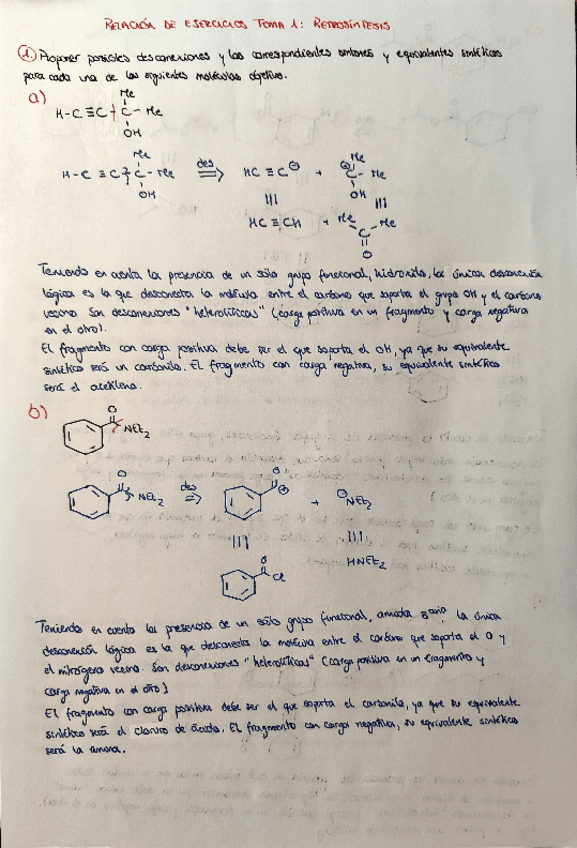 RELACIÓN DE EJERCICIOS TEMA 1: RETROSÍNTESIS
① Proponer posibles desconexiones y los correspondientes sintones y equivalentes sintéticos
para cada una de las siguientes moléculas objetivo.
a)
Me
H-C≡C-C-Me
OH
Me
H-C≡C-C-Me
OH
des
⇒
HC≡C⊖ + ⊕C-Me
Me
OH
HC≡CH + Me C Me
O
Teniendo en cuenta la presencia de un sólo grupo funcional, hidroxilo, la única desconexión
lógica es la que desconecta la molécula entre el carbono que soporta el grupo OH y el carbono
vecino. Son desconexiones "heterolíticas" (carga positiva en un fragmento y carga negativa
en el otro).
El fragmento con carga positiva debe ser el que soporta el OH, ya que su equivalente
sintético será un carbonilo. El fragmento con carga negativa, su equivalente sintético
será el acetileno.
b)
O
NEt₂
O
NEt₂
des
⇒
O
⊕
+ ⊖NEt₂
HNEt₂
O
Cl
Teniendo en cuenta la presencia de un sólo grupo funcional, amida 3aria, la única
desconexión lógica es la que desconecta la molécula entre el carbono que soporta el O y
el nitrógeno vecino. Son desconexiones "heterolíticas" (carga positiva en un fragmento y
carga negativa en el otro)
El fragmento con carga positiva debe ser el que soporta el carbonilo, ya que su equivalente
sintético será el cloruro de ácido. El fragmento con carga negativa, su equivalente sintético
será la amina.